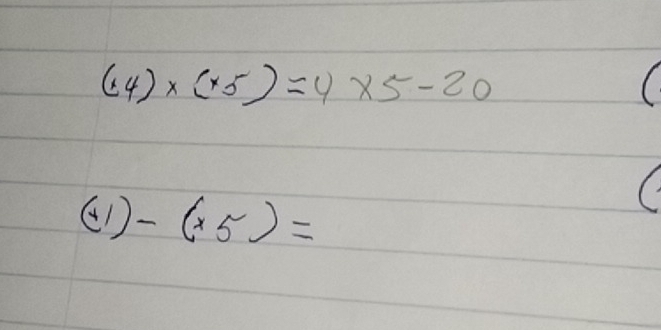 (+4) × (+5) = 4 × 5 - 20 (
(+1) - (+5) = (